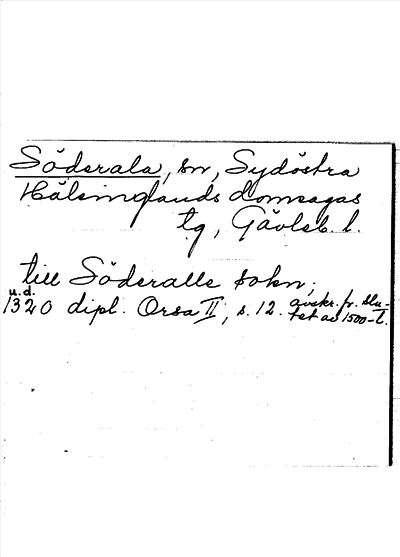 Söderala, sn, Sydöstra
Hälsinglands domsagas
tg, Gävleb. l.
till Söderalle sokn;
u.d.
1320 dipl. Orsa II, s. 12. avskr. fr. slu-
tet av 1500-t.